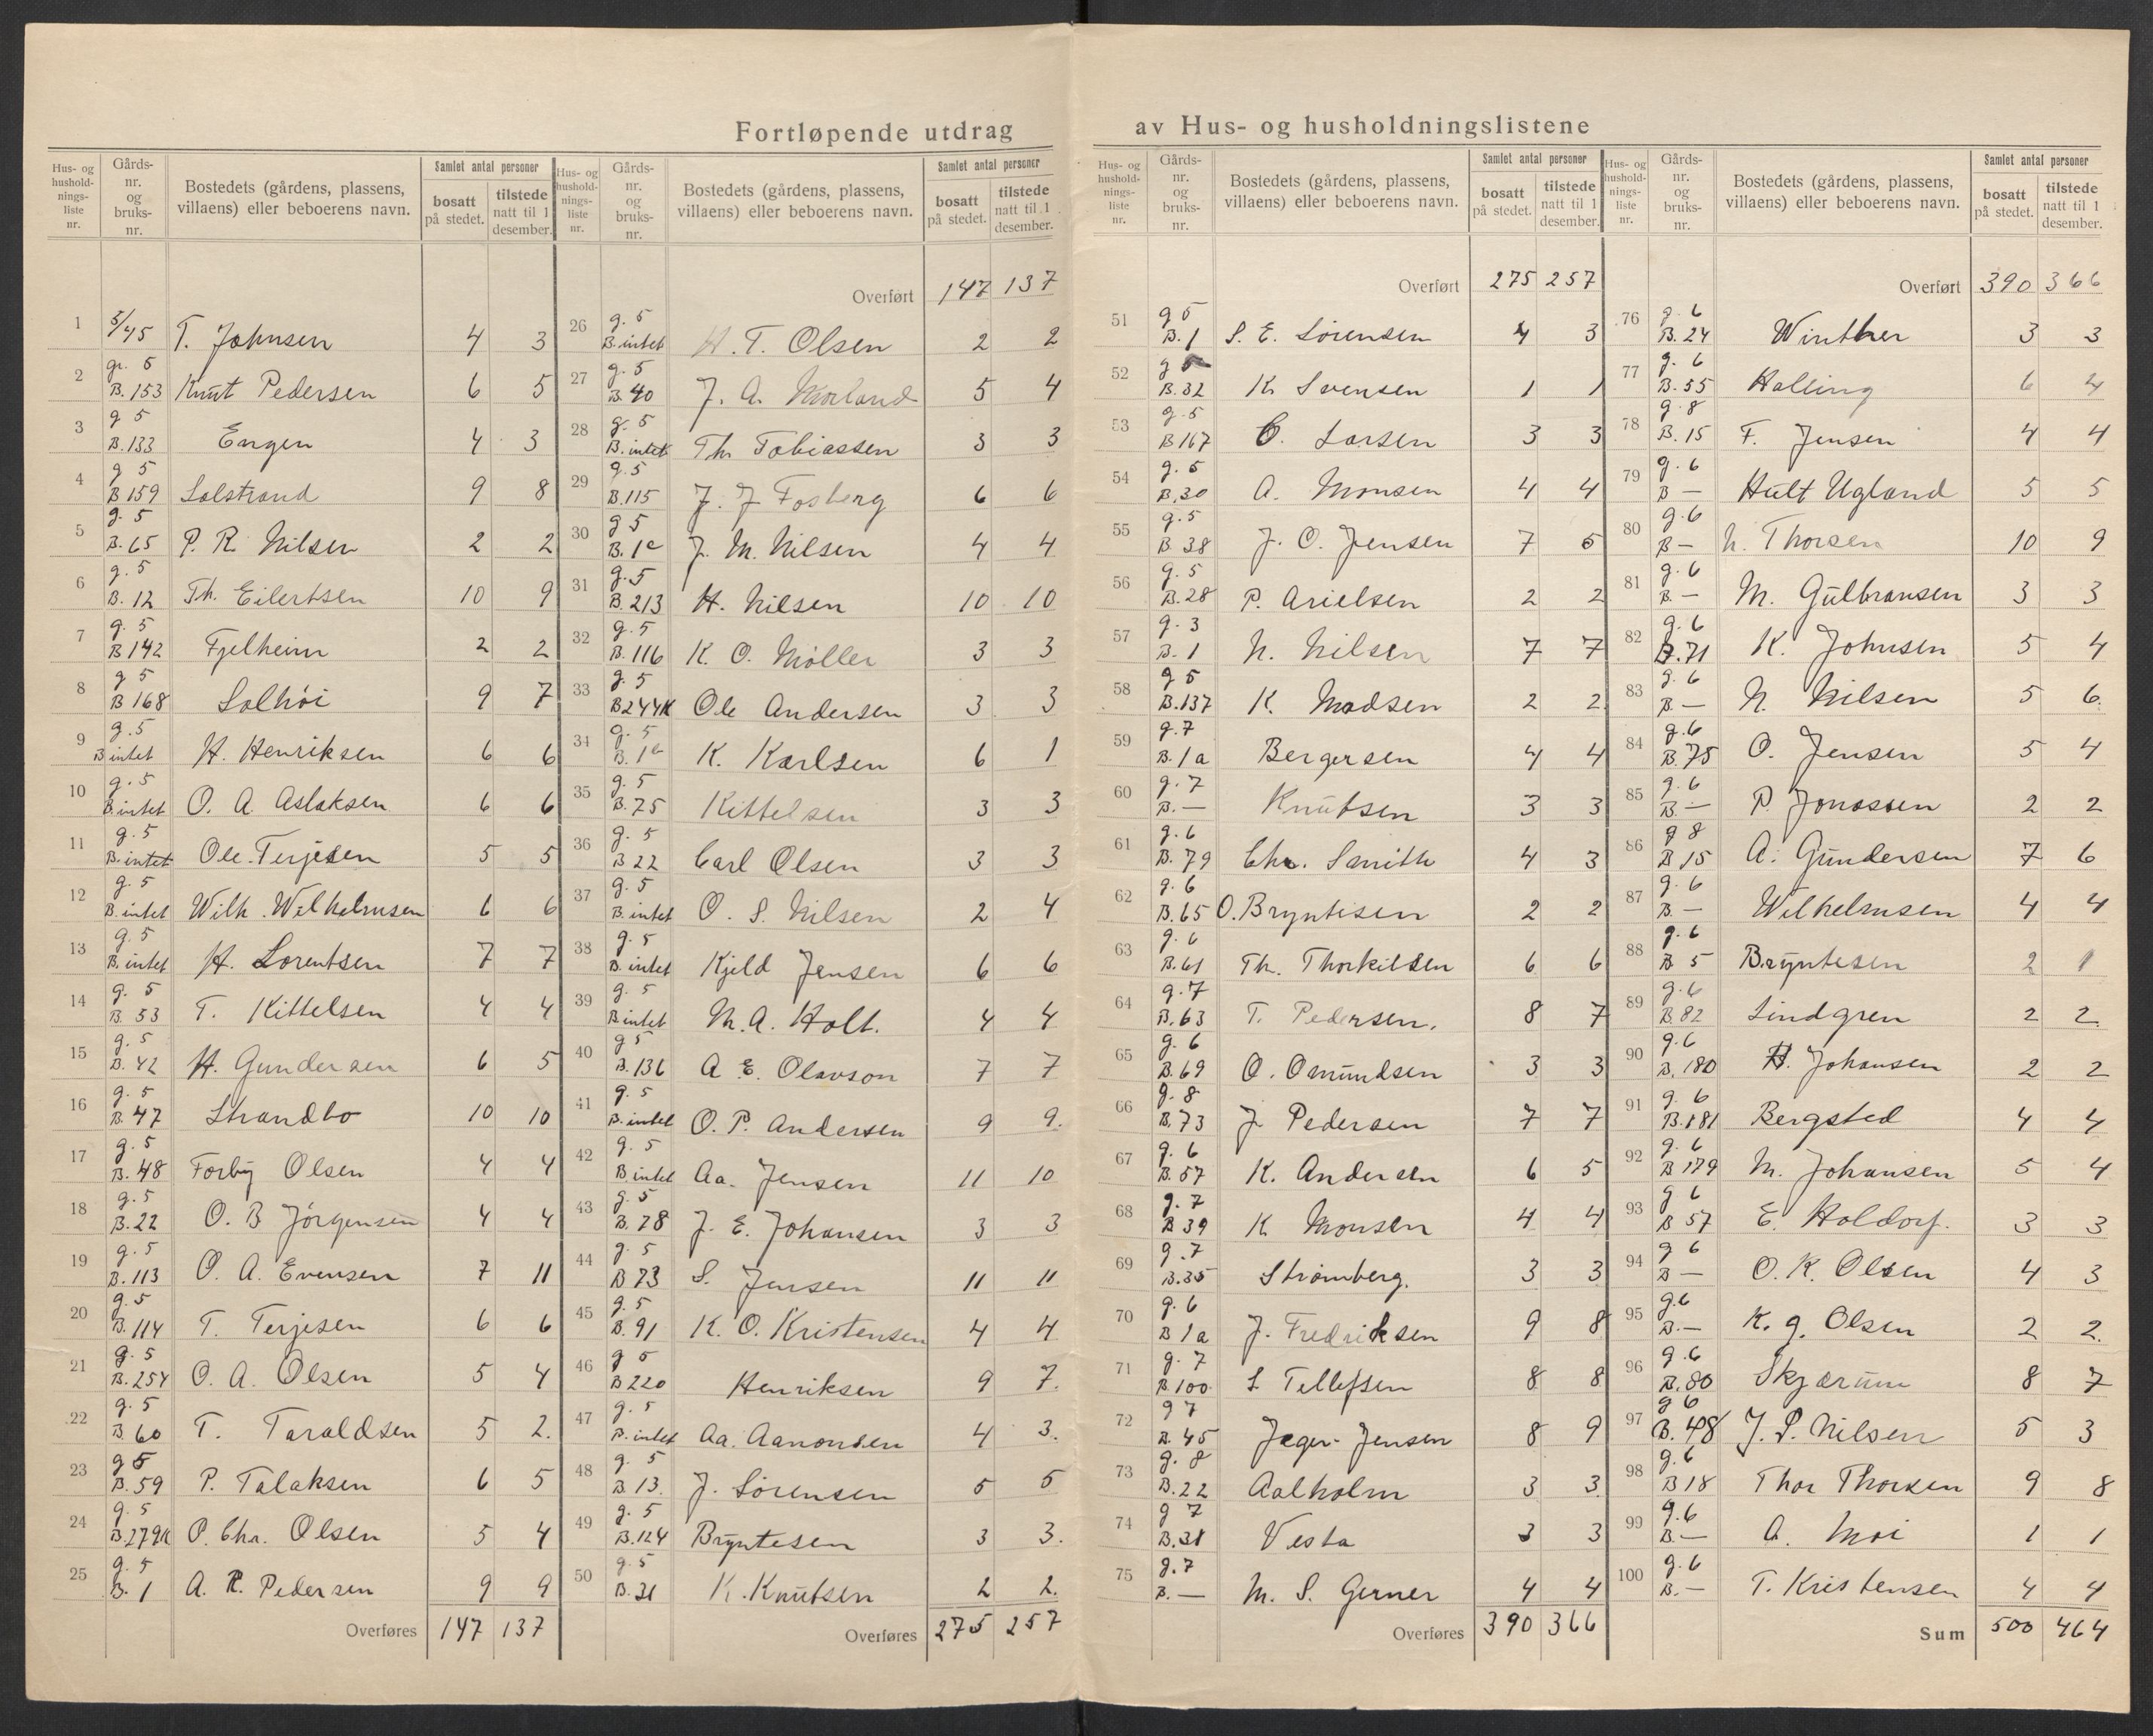 Fortløpende utdrag av Hus- og husholdningslistene
Hus- og hushold-nings-liste nr. | Gårds-nr. og bruks-nr. | Bostedets (gårdens, plassens, villaens) eller beboerens navn. | Samlet antal personer | bosatt på stedet. | tilstede natt til 1 desember.
1 5/45 T. Johnsen 4 3
2 gr. 5 B.153 Knut Pedersen 6 5
3 g 5 B.133 Engen 4 3
4 g 5 B 159 Solstrand 9 8
5 g. 5 B. 65 P. R. Nilsen 2 2
6 g. 5 B. 12 Th. Eilertsen 10 9
7 g. 5 B 142 Fjelheim 2 2
8 g 5 B 168 Solhöi 9 7
9 g. 5 B intet H. Henriksen 6 6
10 g. 5 B. intet O. A. Aslaksen 6 6
11 g. 5 B. intet Ole Terjesen 5 5
12 g. 5 B. intet Wilh. Wilhelmsen 6 6
13 g. 5 B. intet H. Lorentsen 7 7
14 g. 5 B. 53 T. Kittelsen 4 4
15 g. 5 B. 42 H. Gundersen 6 5
16 g. 5 B. 47 Strandbo 10 10
17 g. 5 B. 48 Forby Olsen 4 4
18 g. 5 B. 22 O. B Jörgensen 4 4
19 g. 5 B. 113 O. A. Evensen 7 11
20 g. 5 B. 114 T. Terjesen 6 6
21 g. 5 B. 254 O. A. Olsen 5 4
22 g. 5 B. 60 T. Taraldsen 5 2.
23 g 5 B. 59 P. Talaksen 6 5
24 g. 5 O. Chr. Olsen 5 4
25 g. 5 B. 1 A. R. Pedersen 9 9
Overføres 147 137
Hus- og hushold-nings-liste nr. | Gårds-nr. og bruks-nr. | Bostedets (gårdens, plassens, villaens) eller beboerens navn. | Samlet antal personer | bosatt på stedet. | tilstede natt til 1 desember.
Overført 147 137
26 g. 5 B. intet H. T. Olsen 2 2
27 g. 5 B. 40 J. A. Morland 5 4
28 g. 5 B. intet Th. Tobiassen 3 3
29 g. 5 B. 115 J. J Fosberg 6 6
30 g 5 B. 1c J. M. Nilsen 4 4
31 g. 5 B. 213 H. Nilsen 10 10
32 g. 5 B. 116 K. O. Möller 3 3
33 g. 5 B 244K Ole Andersen 3 3
34 g. 5 K. Karlsen 6 1
35 g. 5 B. 75 Kittelsen 3 3
36 g. 5 B 22 Carl Olsen 3 3
37 g. 5 B. intet O. S. Nilsen 2 4
38 g. 5 B. intet Kjeld Jensen 6 6
39 g. 5 B intet M. A. Holt. 4 4
40 g 5 B. 136 A. E. Olavson 7 7
41 g. 5 B. intet O. P. Andersen 9 9.
42 g. 5 B intet Aa. Jensen 11 10
43 g. 5 B. 78 J. E. Johansen 3 3
44 g. 5 B 73 S. Jensen 11 11
45 g. 5 B. 91 K. O. Kristensen 4 4
46 g 5 B 220 Henriksen 9 7.
47 g. 5 B. intet Aa. Aanonsen 4 3.
48 g. 5 B 13. J. Sörensen 5 5
49 g. 5 B. 124 Bryntesen 3 3.
50 g. 5 B. 31 K. Knutsen 2 2.
Overføres 275 257
Hus- og hushold-nings-liste nr. | Gårds-nr. og bruks-nr. | Bostedets (gårdens, plassens, villaens) eller beboerens navn. | Samlet antal personer | bosatt på stedet. | tilstede natt til 1 desember.
Overført 275 257
51 g 5 B. 1 S. E. Sörensen 4 3
52 g 5 B. 32 K. Svensen 1 1
53 g. 5 B 167 C. Larsen 3 3
54 g. 5 B. 30 A. Monsen 4 4
55 g. 5 B 38 J. O. Jensen 7 5
56 g. 5 B. 28 P. Arielsen 2 2
57 g. 3 B. 1 N. Nilsen 7 7
58 g 5 B. 137 K. Madsen 2 2
59 g. 7 B. 1a Bergersen 4 4
60 g. 7 B. — Knutsen 3 3
61 g. 6 B. 79 Chr. Smith 4 3
62 g. 6 B. 65 O. Bryntesen 2 2
63 g. 6 B. 61 Th. Thorkildsen 6 6
64 g. 7 B. 63 T. Pedersen. 8 7
65 g. 6 B. 69 O. Omundsen 3 3
66 g. 8 B. 73 J. Pedersen 7 7
67 g. 6 B. 57 K. Andersen 6 5
68 g. 7 B 39 K Monsen 4 4
69 g. 7 B. 35 Strömberg. 3 3
70 g. 6 B 1a J. Fredriksen 9 8
71 g. 7 B. 100 S Tellefsen 8 8
72 g 7 B. 45 Jæger-Jensen 8 9
73 g. 8 B. 22 Aalholm 3 3
74 g 7 B. 31 Vesta 3 3
75 g. 7 B. — M. S. Gerner 4 4
Overføres 390 366
Hus- og hushold-nings-liste nr. | Gårds-nr. og bruks-nr. | Bostedets (gårdens, plassens, villaens) eller beboerens navn. | Samlet antal personer | bosatt på stedet. | tilstede natt til 1 desember.
Overført 390 366
76 g. 6 B. 24 Winther 3 3
77 g. 6 B. 55 Halling 6 4
78 g. 8 B. 15 F. Jensen 4 4
79 g. 6 B — Hult Ugland 5 5
80 g. 6 B — N. Thorsen 10 9
81 g. 6 B — M. Gulbransen 3 3
82 g. 6 B. 71 K. Johnsen 5 4
83 g. 6 B — N. Nilsen 5 6.
84 g. 6 B. 75 O. Jensen 5 4
85 g. 6 B. — P. Jonassen 2 2
86 g 8 B 15 A. Gundersen 7 6
87 g. 6 B. — Wilhelmsen 4 4
88 g. 6 B 5 Bryntesen 2 1
89 g. 6 B. 82 Lindgren 2 2
90 g. 6 B. 180 H. Johansen 2 2
91 g. 6 B. 181 Bergsted 4 4
92 g. 6 B 179 M. Johansen 5 4
93 g 6 B 57 E. Holdorf. 3 3
94 g 6 B — O. K. Olsen 4 3
95 g. 6 B. — K. G. Olsen 2 2.
96 g. 6 B. 80 Skjærum 8 7
97 g 6 B. 48 J. P. Nilsen 5 3
98 g. 6 B 18 Thor Thorsen 9 8
99 g. 6 B. — A. Moi 1 1
100 g. 6 B. — T. Kristensen 4 4
Sum 500 464